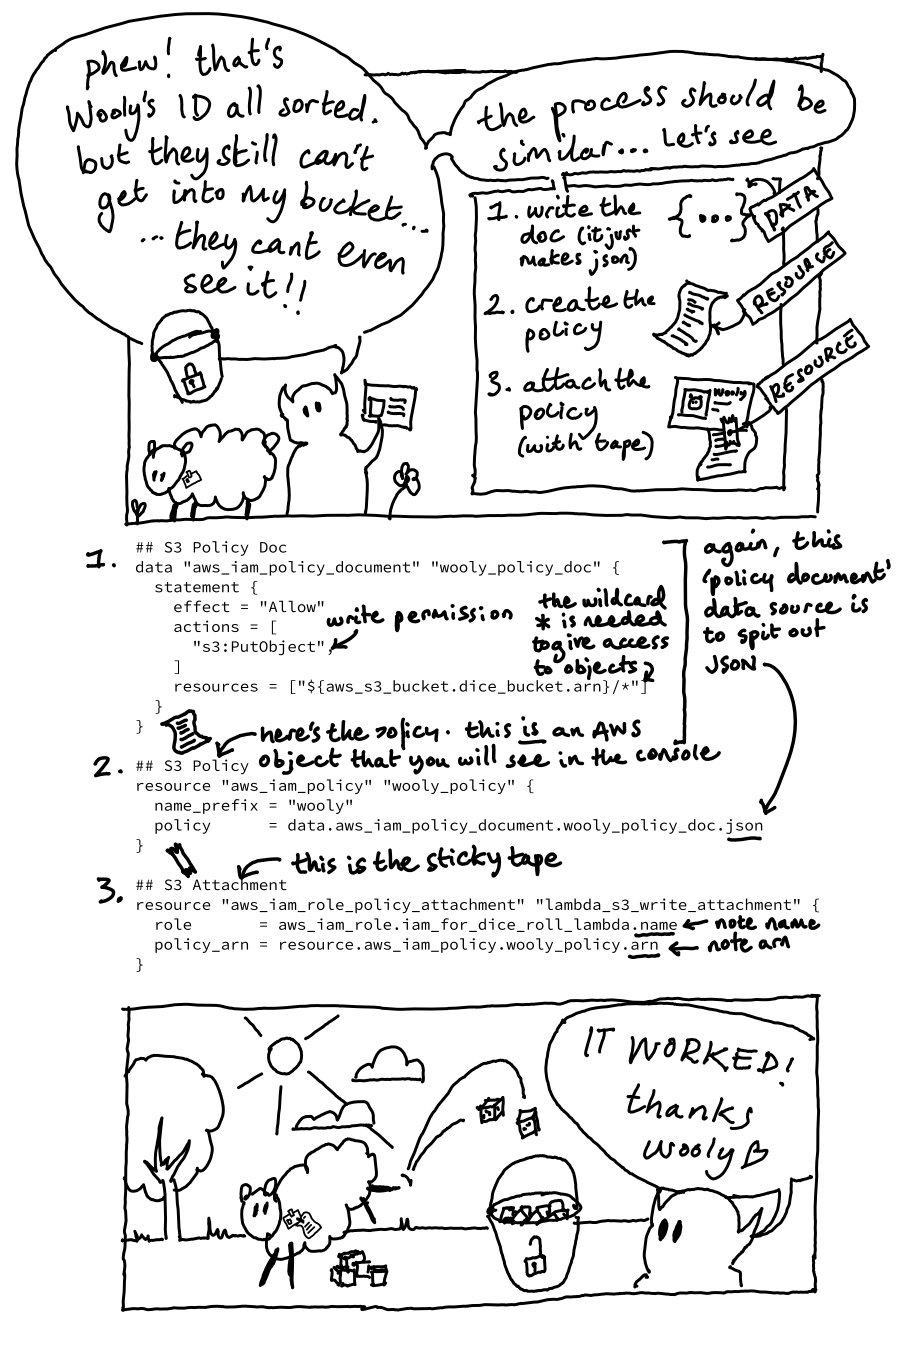 phew! that's
Wooly's ID all sorted.
but they still can't
get into my bucket...
... they cant even
see it!!
the process should be
similar... Let's see
1. write the
doc (it just
makes json)
{...}
DATA
2. create the
policy
RESOURCE
3. attach the
policy
(with tape)
Wooly
RESOURCE
1.
## S3 Policy Doc
data "aws_iam_policy_document" "wooly_policy_doc" {
statement {
effect = "Allow"
actions = [
"s3:PutObject",
]
resources = ["${aws_s3_bucket.dice_bucket.arn}/*"]
}
}
write permission
the wildcard
* is needed
to give access
to objects
again, this
'policy document'
data source is
to spit out
JSON
here's the policy. this is an AWS
object that you will see in the console
2.
## S3 Policy
resource "aws_iam_policy" "wooly_policy" {
name_prefix = "wooly"
policy = data.aws_iam_policy_document.wooly_policy_doc.json
}
this is the sticky tape
3.
## S3 Attachment
resource "aws_iam_role_policy_attachment" "lambda_s3_write_attachment" {
role = aws_iam_role.iam_for_dice_roll_lambda.name
note name
policy_arn = resource.aws_iam_policy.wooly_policy.arn
note arn
}
IT WORKED!
thanks
wooly